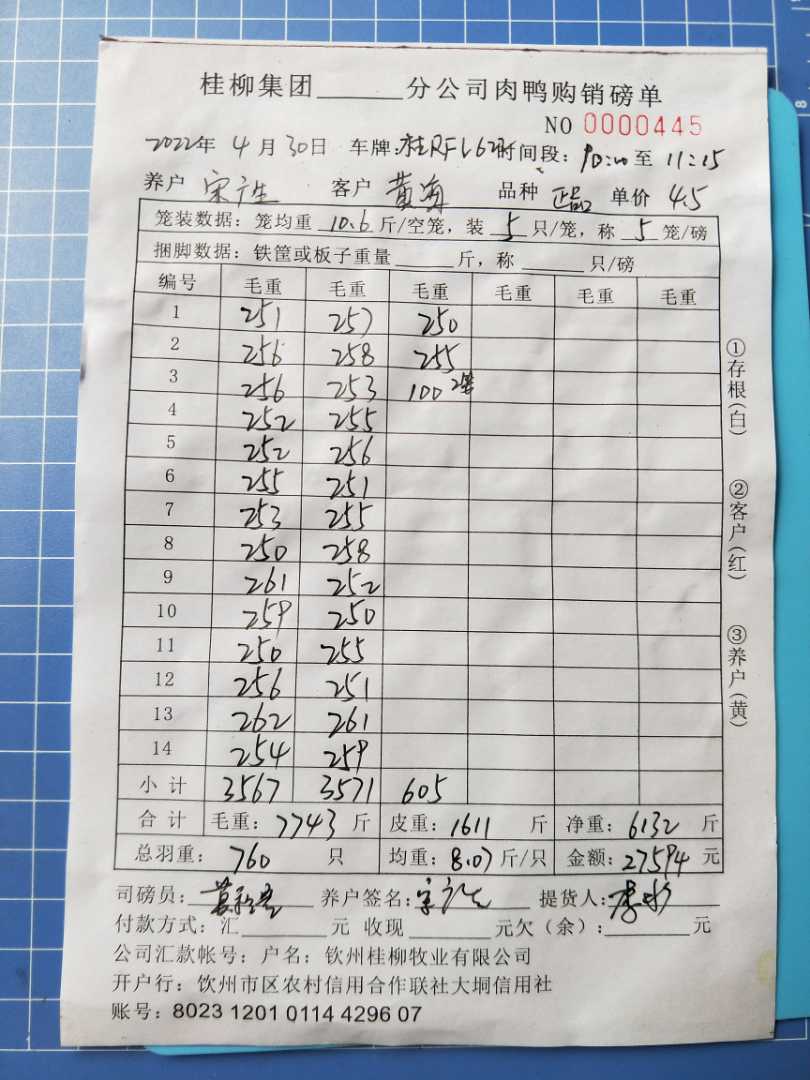 桂柳集团______分公司肉鸭购销磅单
NO 0000445
2022年 4月30日 车牌:桂RFL62 时间段:90:20至11:15
养户 宋广生 客户 黄海 品种 正品 单价 4.5
笼装数据:笼均重 10.6 斤/空笼,装 5 只/笼,称 5 笼/磅
捆脚数据:铁筐或板子重量______斤,称______只/磅
编号 毛重 毛重 毛重 毛重 毛重 毛重
1 251 257 250
2 256 258 255
3 256 253 100 2笼
4 252 255
5 252 256
6 255 251
7 253 255
8 250 258
9 261 252
10 259 250
11 250 255
12 256 251
13 262 261
14 254 259
小计 3567 3571 605
合计 毛重:7743斤 皮重:1611斤 净重:6132斤
总羽重:760只 均重:8.07斤/只 金额:27594元
司磅员: 养户签名:宋广生 提货人:
付款方式:汇______元 收现______元欠(余):______元
公司汇款帐号:户名:钦州桂柳牧业有限公司
开户行:钦州市区农村信用合作联社大垌信用社
账号:8023 1201 0114 4296 07
①存根(白)
②客户(红)
③养户(黄)